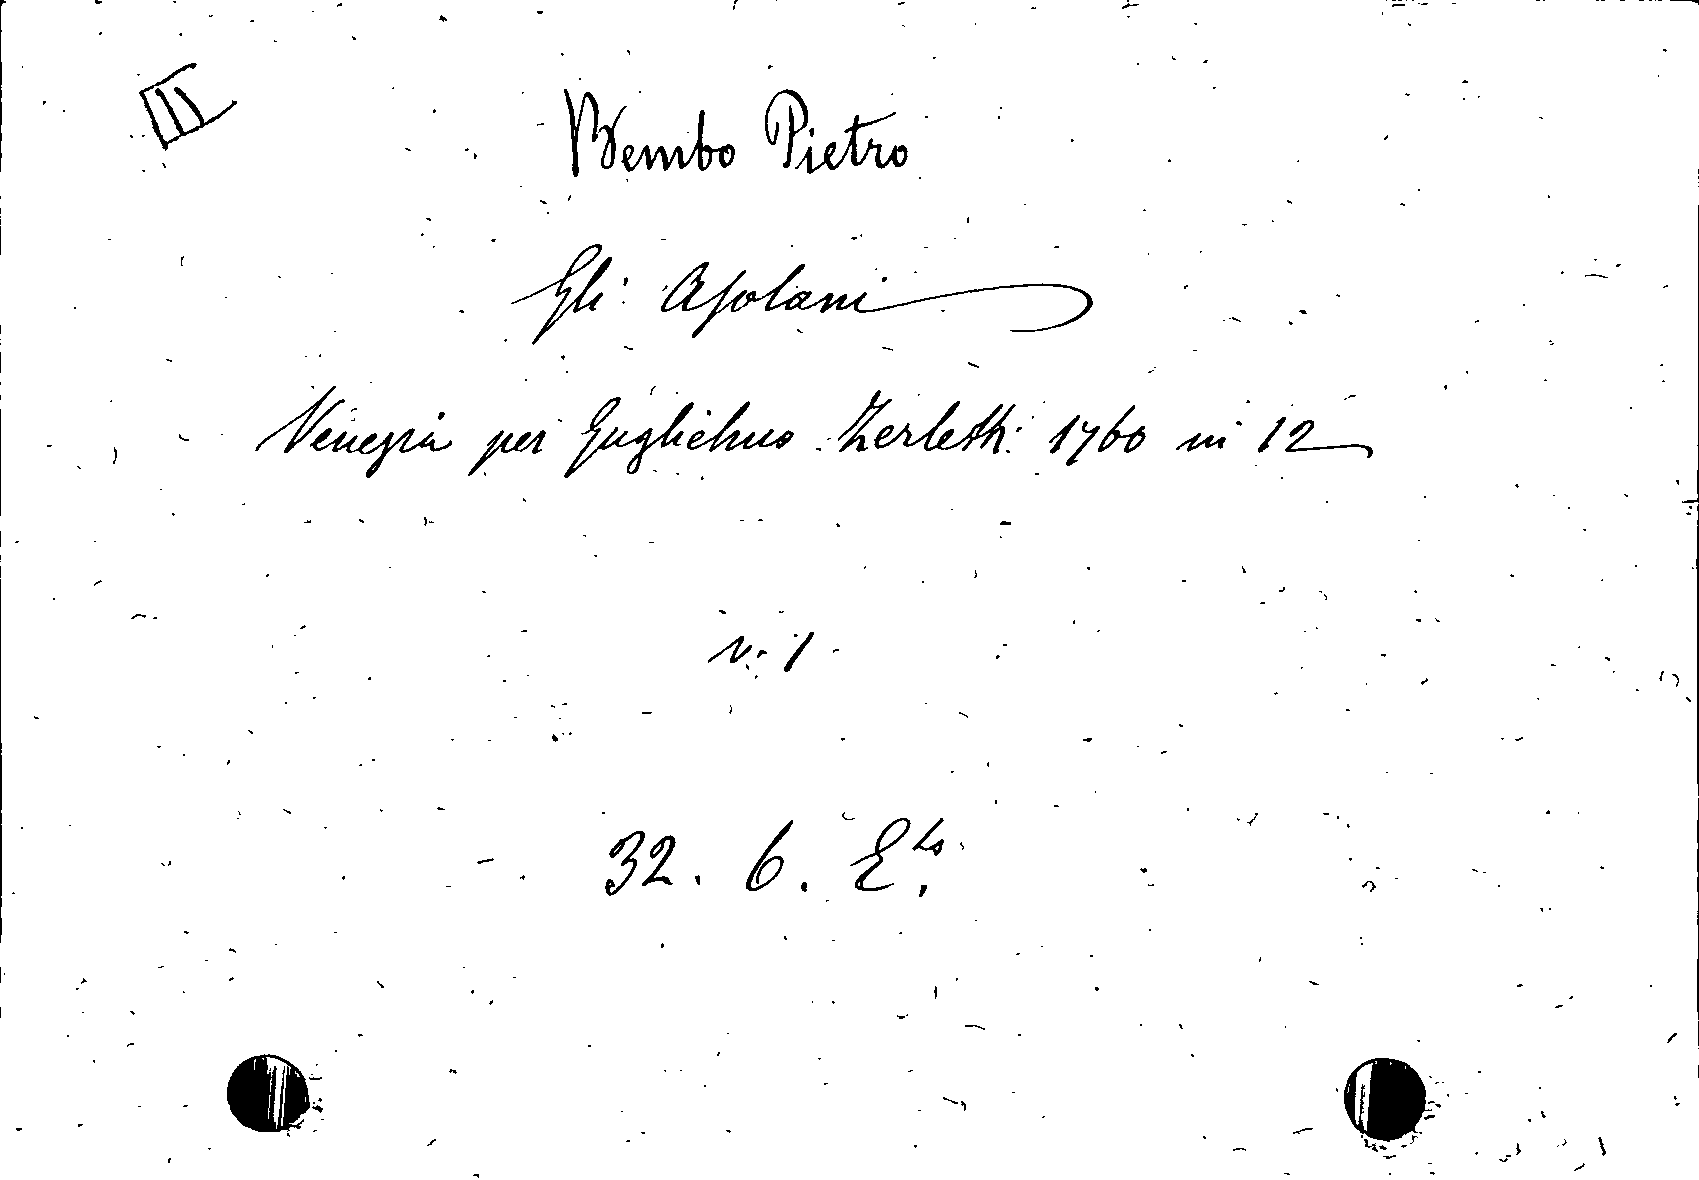 III
Bembo Pietro
Gli Asolani
Venezia per Guglielmo Zerletti 1760 in 12
v. 1
32. 6. E